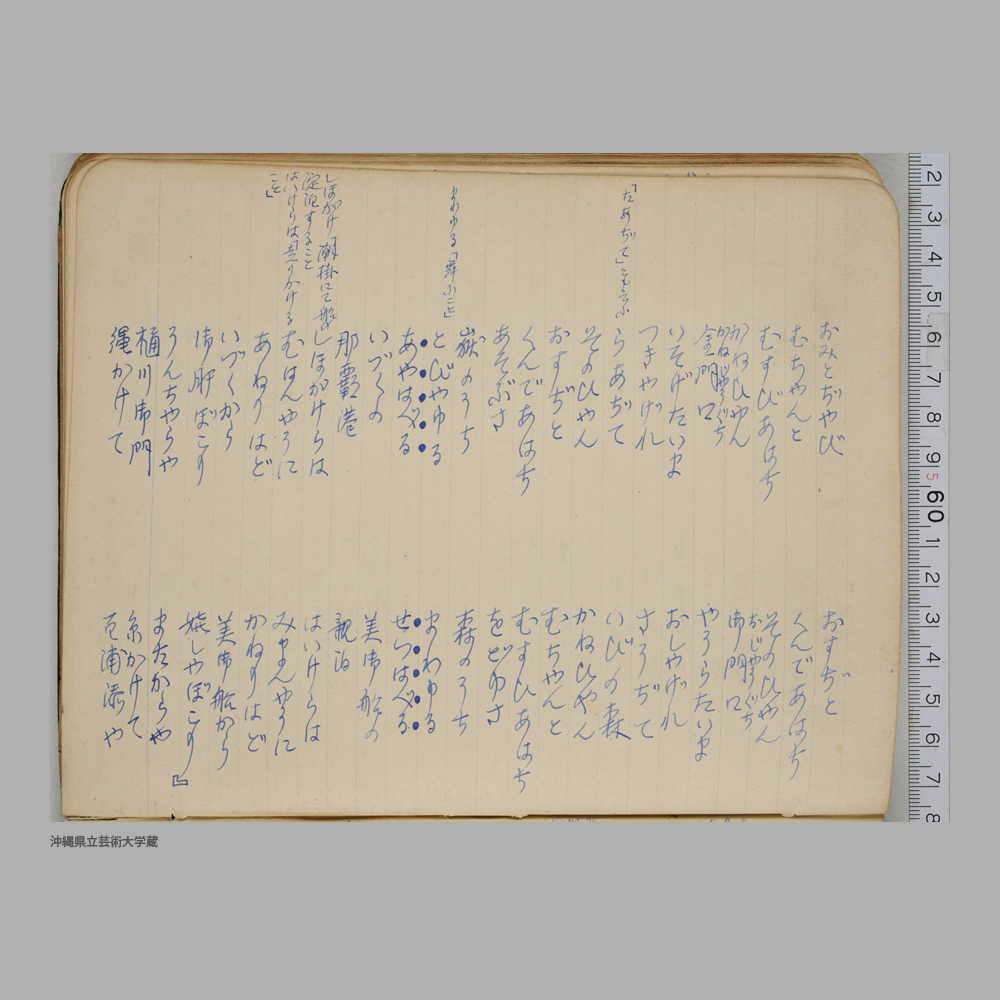 おみとぢやび
むちやんと
むすびあはち
かねひやん
金門口
いそげたいま
つきやげれ
らあぢて
そのひやん
おすぢと
くんであはち
あそぶさ
嶽のうち
とびやゆる
あやはべる
いづくの
那覇港
しほがけらは
むはんやうに
あねりはど
いづくから
御肝ぼこり
うんちやらや
樋川御門
縄かけて
おすぢと
くんであはち
そのひやん
おじやうぐち
御門口
やうらたいま
おしやげれ
さうぢて
いびの森
かねひやん
むちやんと
むすひあはち
をどゆさ
森のうち
まわゆる
せいはべる
美御船の
親泊
はいけらは
みまんやうに
かねりはど
美御船から
嬉しやぼこり』
またからや
糸かけて
百浦添や
「たあぢて」とも云ふ
まわゆる「舞ふこと」
しほがけ「潮掛にて船の
淀泊すること
はいけらは「走りかける
こと」
2 3 4 5 6 7 8 9 60 1 2 3 4 5 6 7 8
5
沖縄県立芸術大学蔵